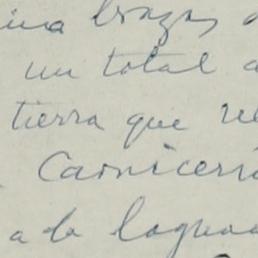 brazas
un total
tierra que re
Carniceri
a la laguna